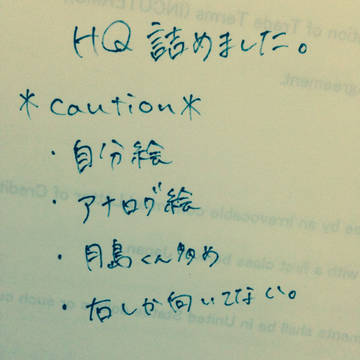 HQ 詰めました。
*caution*
・自分絵
・アナログ絵
・月島くん多め
・右しか向いてない。